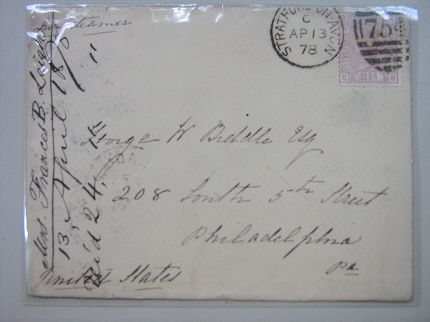 per Steamer
STRATFORD-ON-AVON
C
AP 13
78
75
George W. Biddle Esq
208 South 5th Street
Philadelphia
Pa
United States
Mrs. Frances B. Leigh
13 April 1878